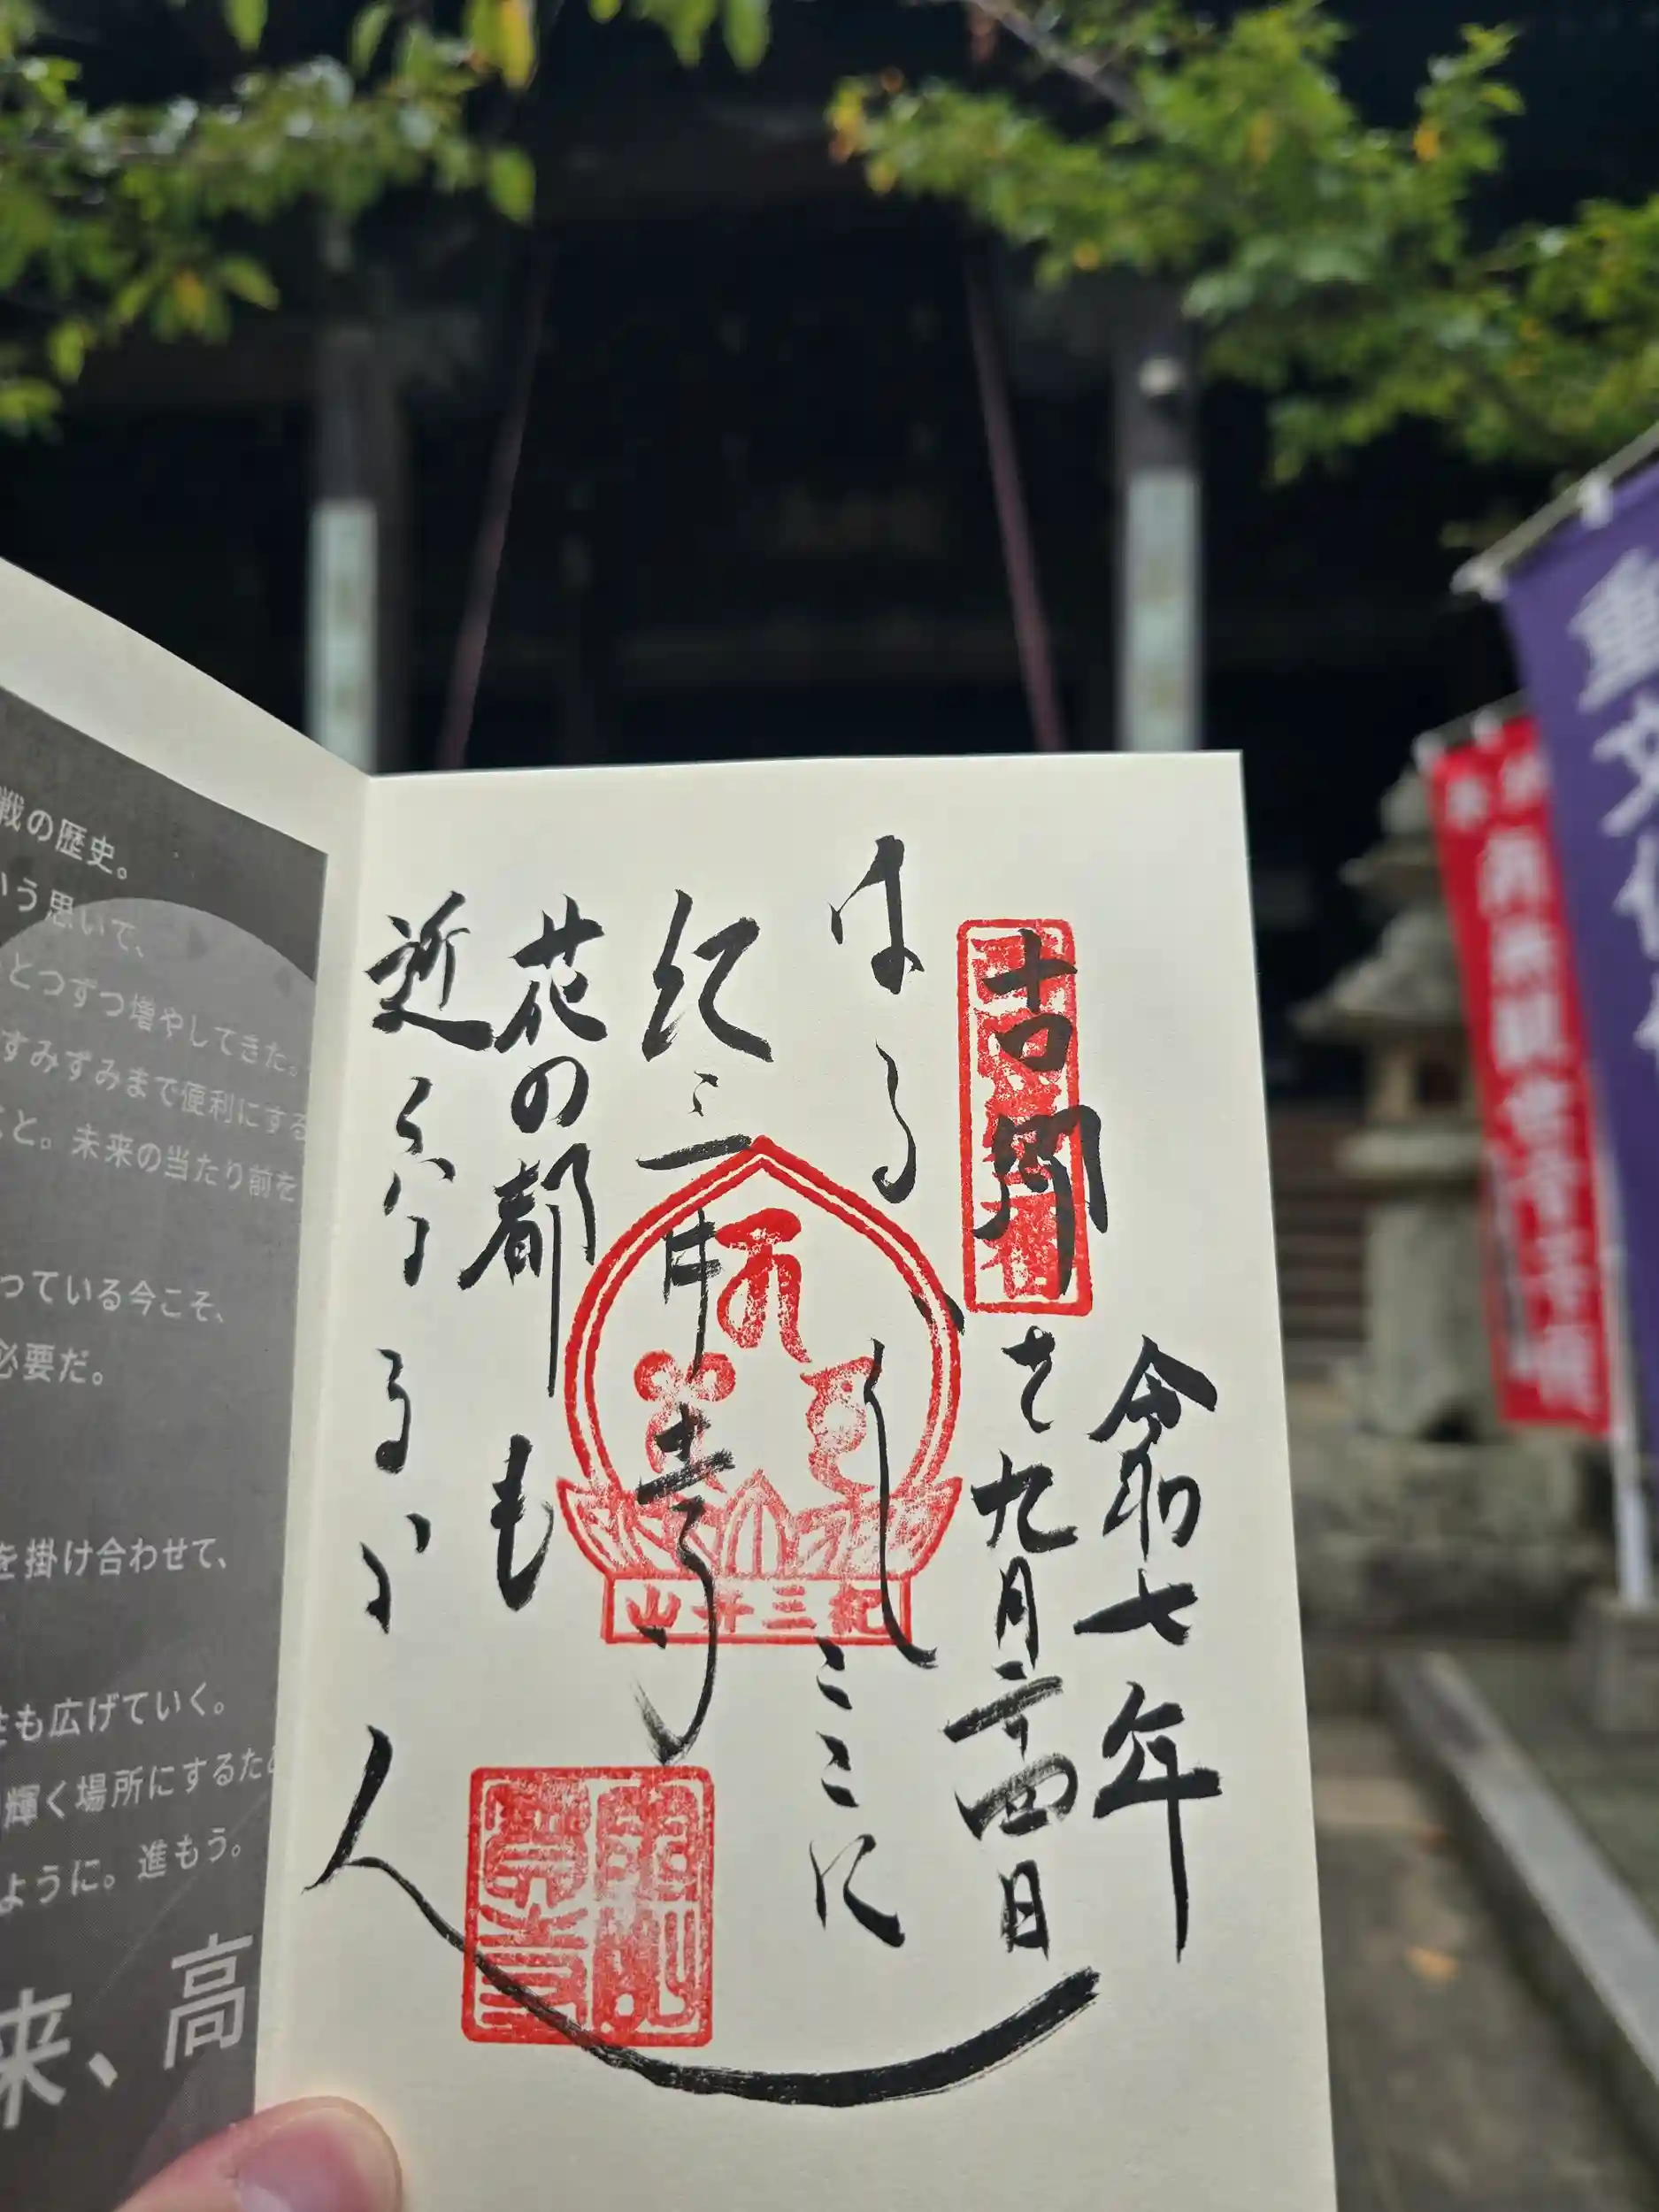 令和七年
九月二十四日
古郷を
はる〲ここに
紀三井寺
花の都も
近くなるらん
紀三井山
戦の歴史。
いう思いで、
とつずつ増やしてきた。
すみずみまで便利にする
こと。未来の当たり前を
っている今こそ、
必要だ。
を掛け合わせて、
性も広げていく。
輝く場所にするため
ように。進もう。
来、高
重文